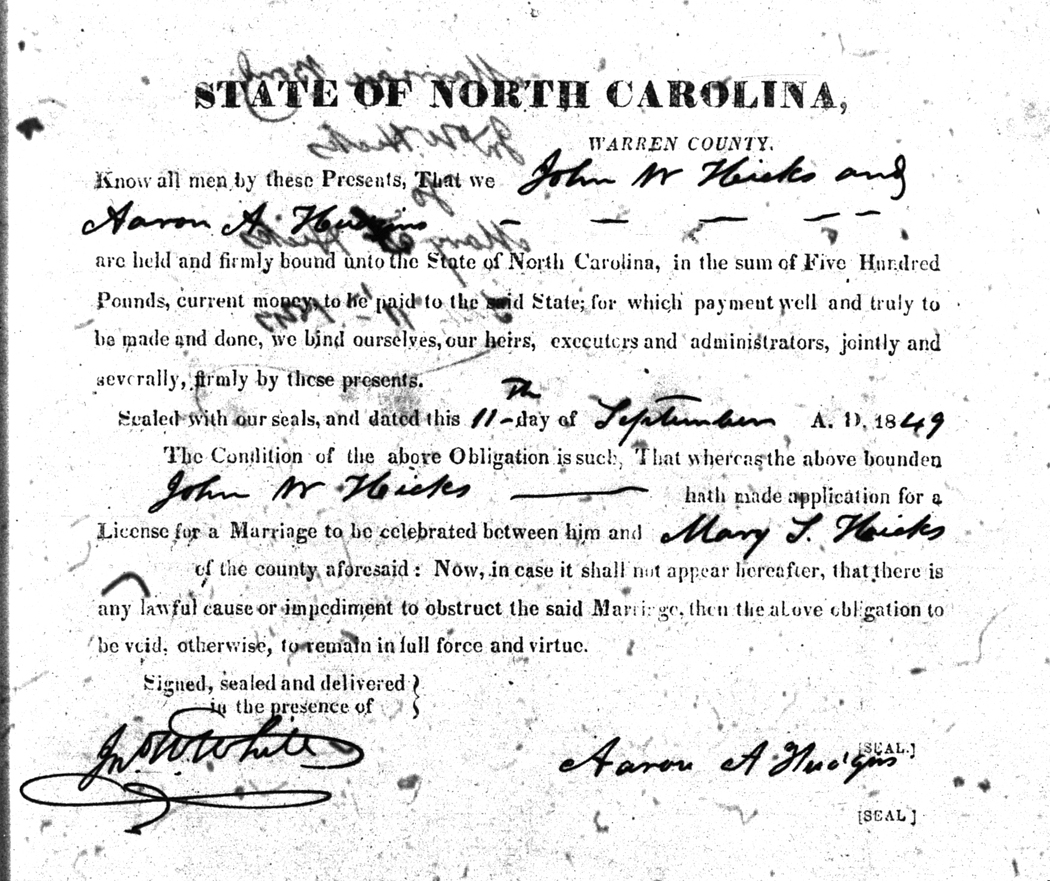 STATE OF NORTH CAROLINA,
WARREN COUNTY.
Know all men by these Presents, That we John W Hicks and
Aaron A Hudgins
are held and firmly bound unto the State of North Carolina, in the sum of Five Hundred
Pounds, current money, to be paid to the said State; for which payment well and truly to
be made and done, we bind ourselves, our heirs, executors and administrators, jointly and
severally, firmly by these presents.
Sealed with our seals, and dated this 11th day of September A. D. 1849
The Condition of the above Obligation is such, That whereas the above bounden
John W Hicks hath made application for a
License for a Marriage to be celebrated between him and Mary S. Hicks
of the county aforesaid: Now, in case it shall not appear hereafter, that there is
any lawful cause or impediment to obstruct the said Marriage, then the above obligation to
be void; otherwise, to remain in full force and virtue.
Signed, sealed and delivered
in the presence of
Jno. W. White
Aaron A Hudgins [SEAL.]
[SEAL]